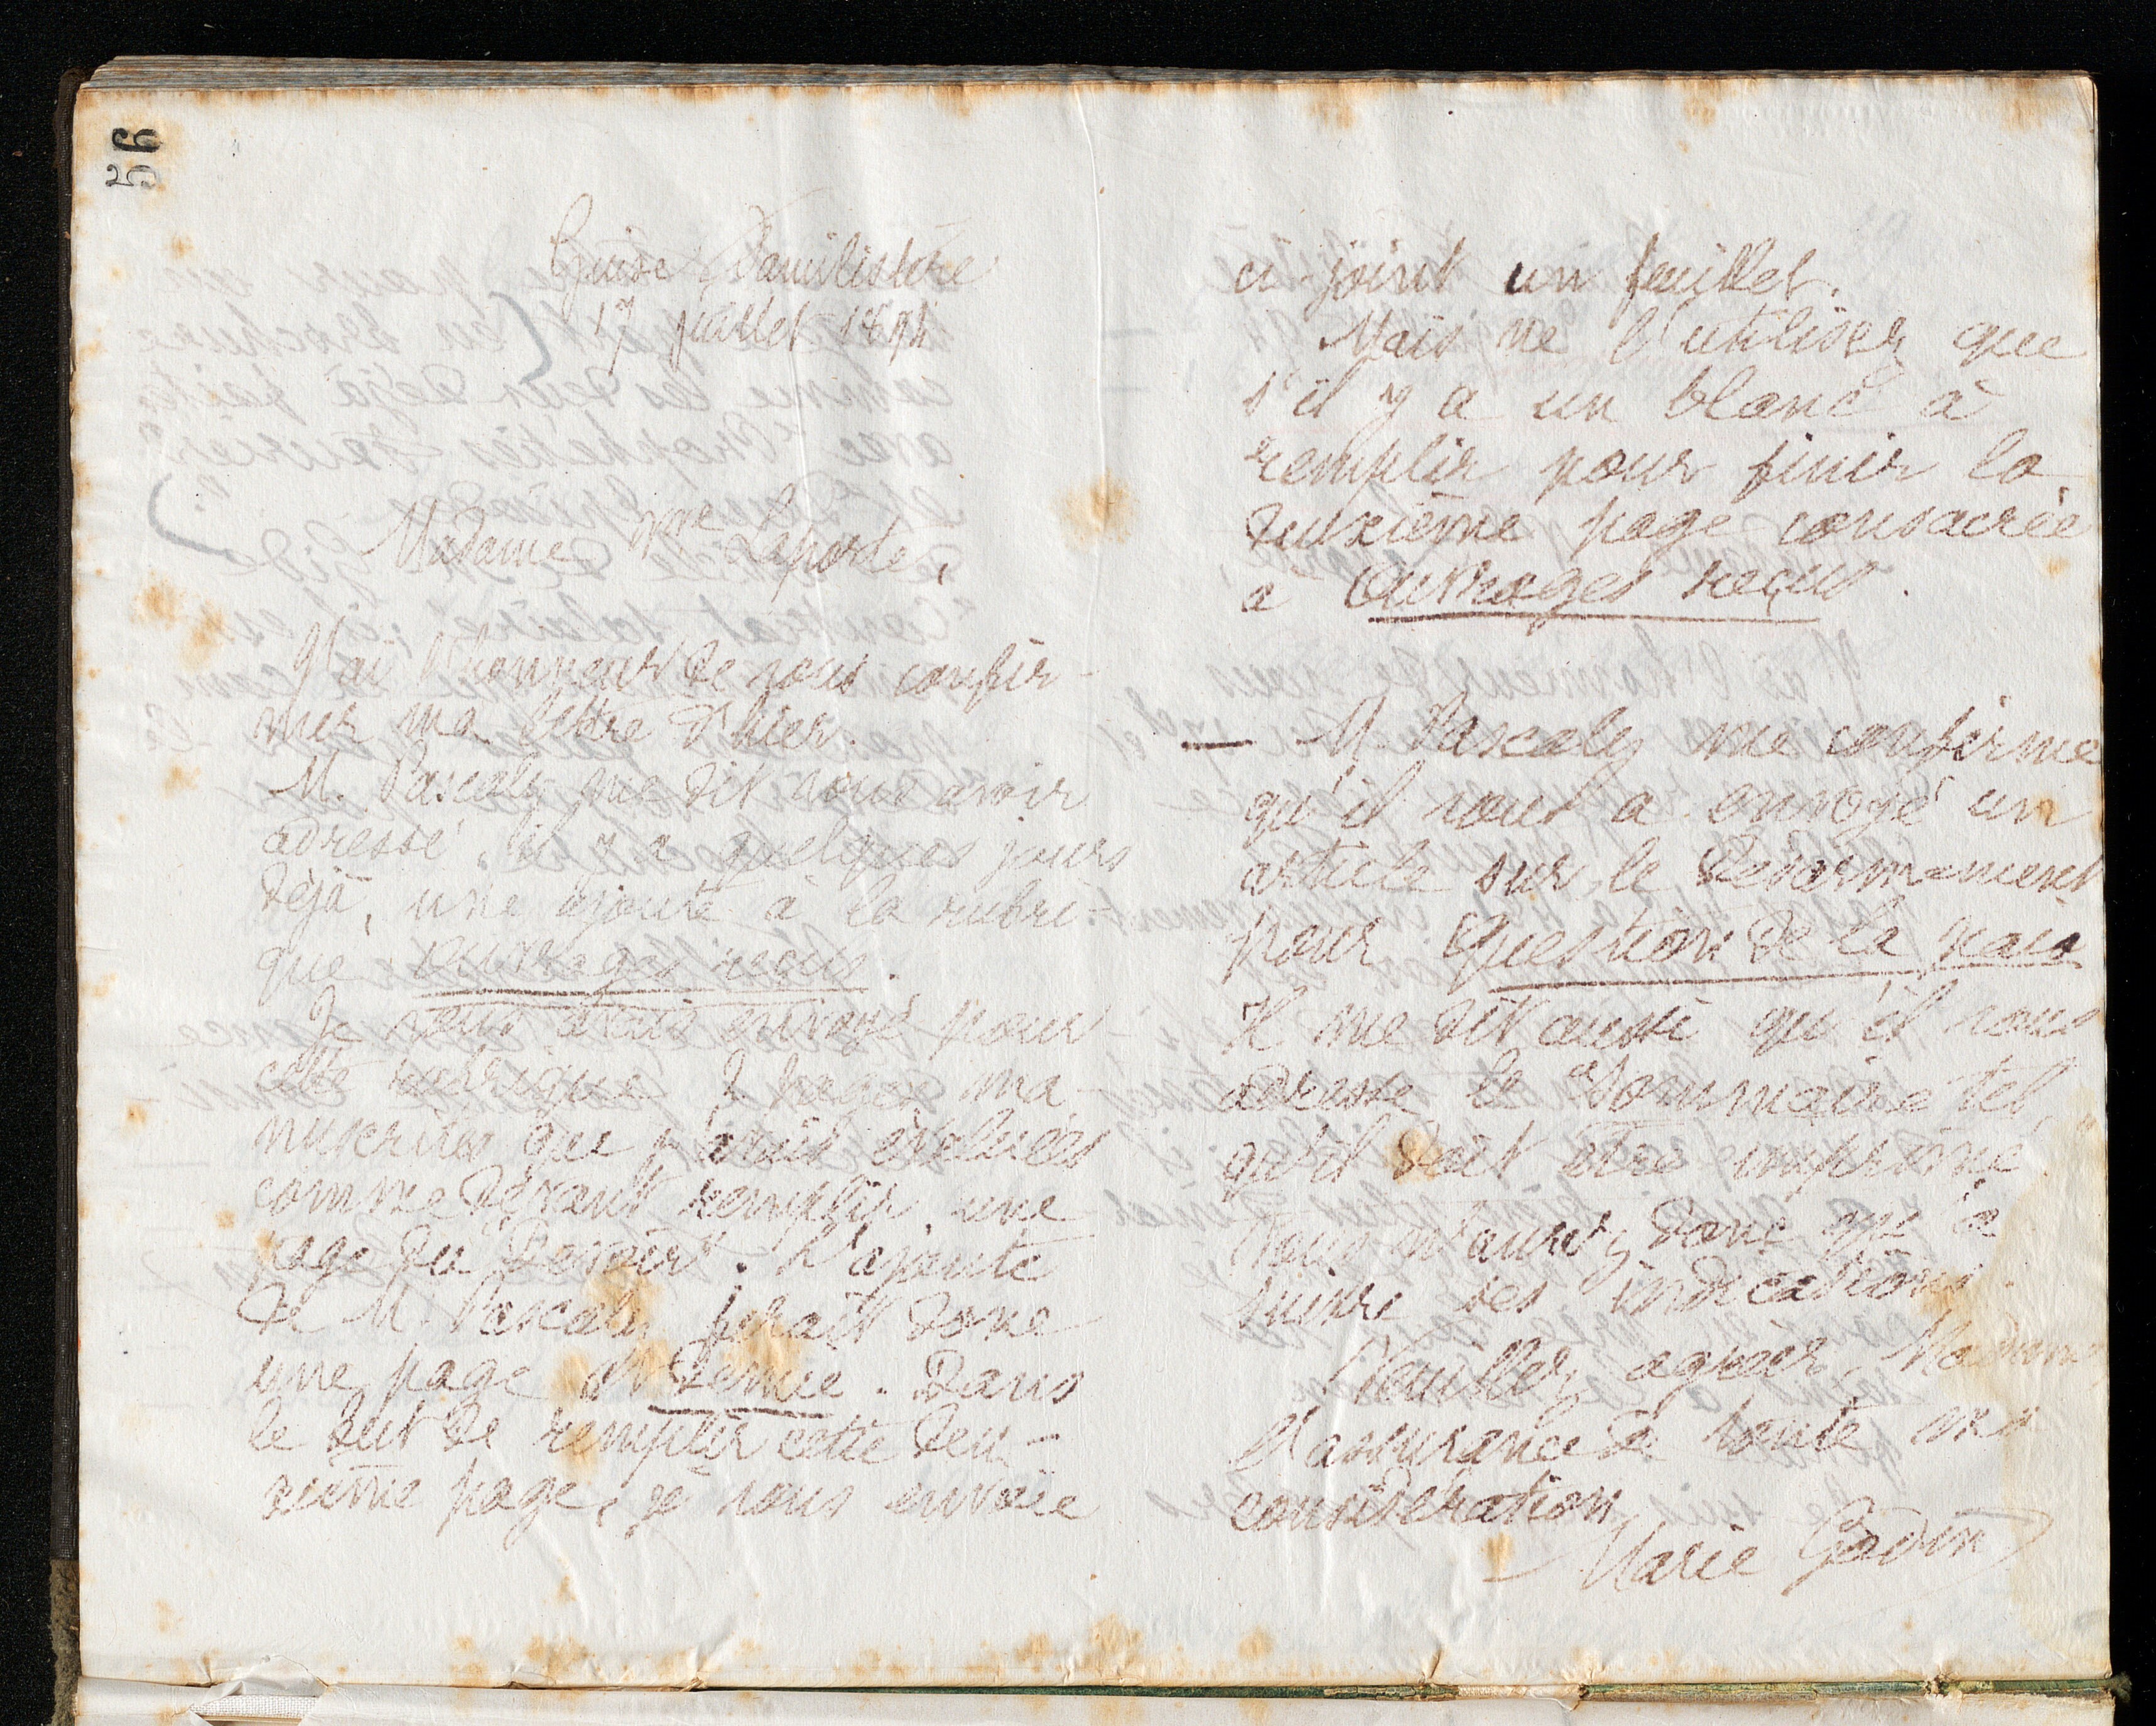 56
Guise Familistère
17 juillet 1894
Madame Vve Laporte,
J'ai l'honneur de vous confir-
mer ma lettre d'hier.
M. Pascaly me dit vous avoir
adressé, il y a quelques jours
déjà, une ajoute à la rubri-
que ouvrages reçus.
Je vous avais envoyé pour
cette rubrique 3 pages ma-
nuscrites que j'avais évaluées
comme devant remplir une
page du "Devoir". L'ajoute
de M. Pascaly ferait donc
une page et demie. Dans
le but de remplir cette deu-
xième page, je vous envoie
ci-joint un feuillet.
Mais ne l'utilisez que
s'il y a un blanc à
remplir pour finir la
deuxième page consacrée
à Ouvrages reçus.
— M. Pascaly me confirme
qu'il vous a envoyé un
article sur le désarmement
pour Question de la paix
Il me dit aussi qu'il vous
adresse le "Sommaire tel
qu'il doit être imprimé"
Vous n'aurez donc qu'à
suivre ses indications.
Veuillez agréer, Madame
l'assurance de toute ma
considération
Marie Godin